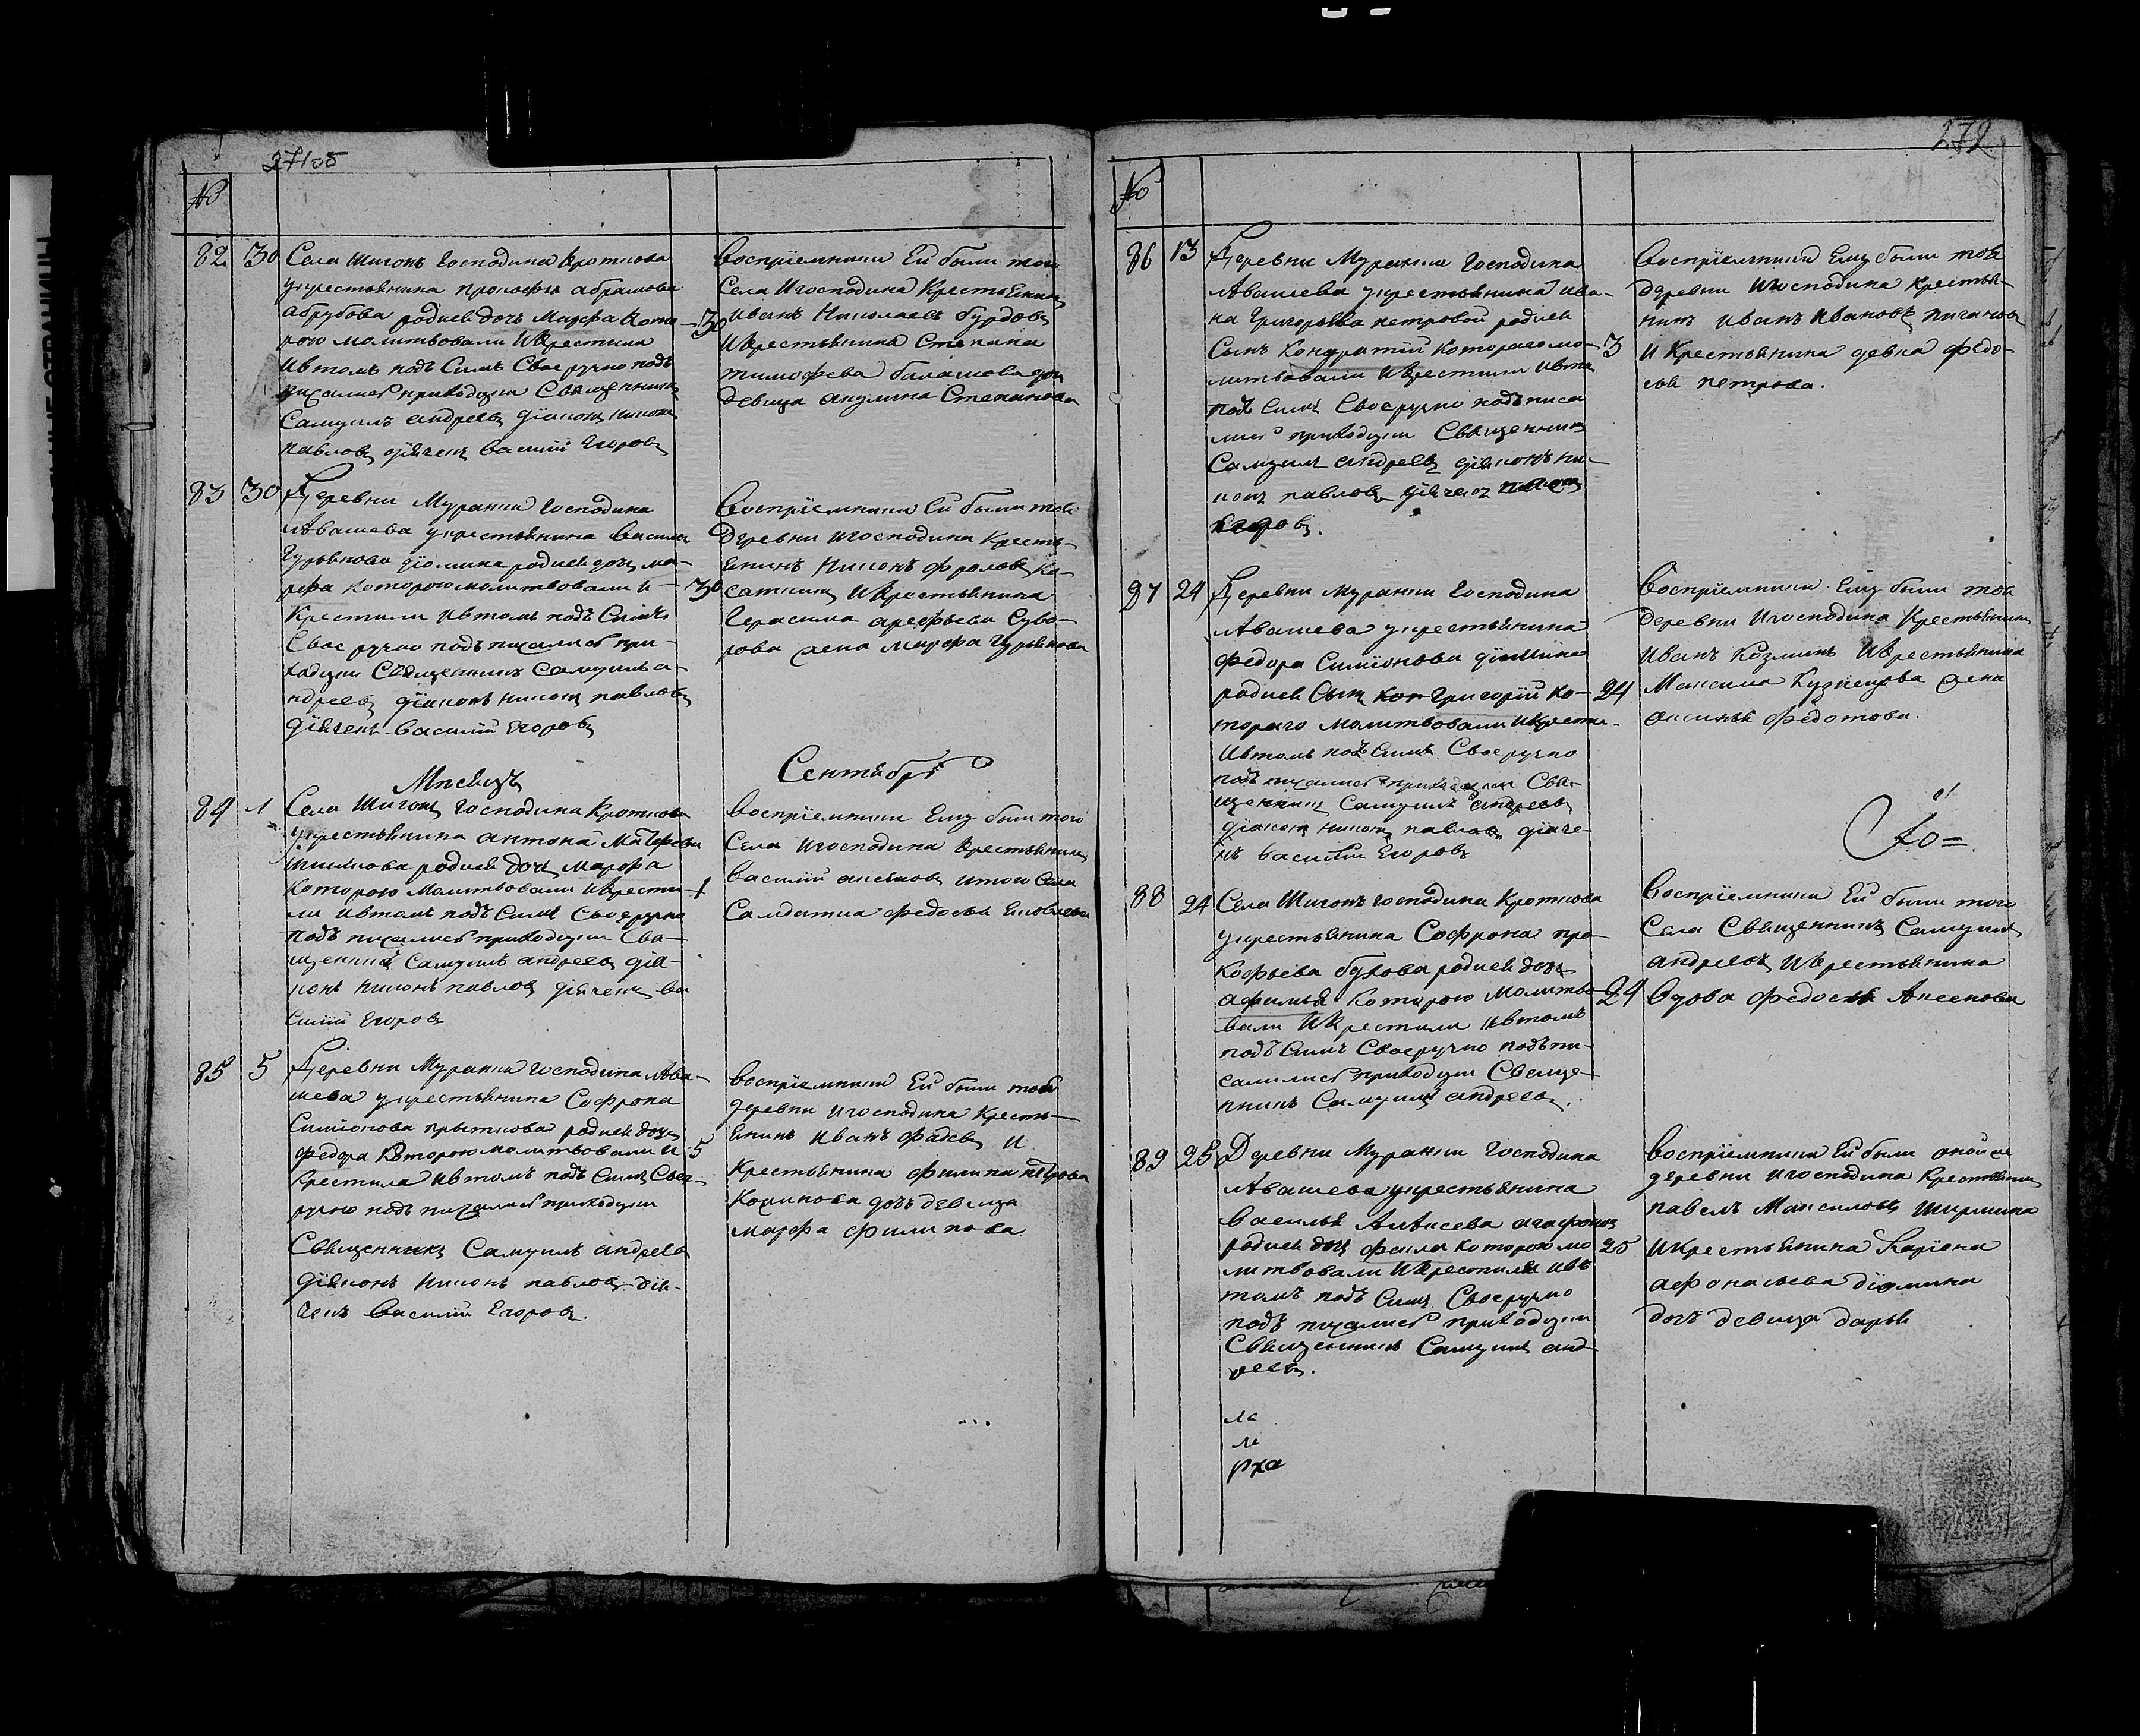 271 об
№
82 30 Села Шигонъ Господина Кроткова
укрестьянина прокофья абрамова
абрубова родися дочь Марфа Кото-
рою молитвовали Икрестили
Ивтомъ подъ Симъ Своеручно подъ
писались приходскии Священникъ
Самуилъ андреевъ дiаконъ никонъ
павловъ дьячекъ василiй Егоровъ
30
Восприемники Ей были того
Села Игосподина Крестьянинъ
иванъ Николаевъ бурдовъ
Икрестьянина Степана
тимофеева балашова дочь
девица акулина Степанова
83 30 Деревни Муранки господина
Авашева укрестьянина василья
гурьянова дiомина родися дочь ма-
рфа которою молитвовали и
Крестили Ивтомъ подъ Симъ
Своеручно подъписались при-
ходскии Священникъ Самуилъ а-
ндреевъ дiаконъ никонъ павловъ
дьячекъ василiй Егоровъ
30
Восприемники Ей были той
Деревни Игосподина Кресть-
янинъ Никонъ фроловъ ка-
саткинъ Икрестьянина
Герасима арефьева Суво-
рова жена марфа гурьянова
Месецъ Сентябрь
84 1 Села Шигонъ господина Кроткова
укрестьянина антона Матфеева
родися дочь Марфа
Которою Молитвовали Икрести-
ли Ивтомъ подъ Симъ Своеручно
подъ писались приходскии Свя-
щенникъ Самуилъ андреевъ дiя-
конъ никонъ павловъ дьячекъ ва
силiй Егоровъ
1
Восприемники Ему были того
Села Игосподина Крестьянинъ
василiй аксеновъ итого Села
Салдатка федосья Ековлева
85 5 Деревни Муранки господина Ава-
шева укрестьянина Софрона
Симiонова прыткова родися дочь
федора Которою молитвовали и
Крестила Ивтомъ подъ Симъ Свое-
ручно подъ писались приходскии
Священникъ Самуилъ андреевъ
дiяконъ никонъ павловъ дья-
чекъ василiй Егоровъ.
5
восприемники Ей были тоей
деревни Игосподина Кресть-
янинъ Иванъ Фадеевъ И
Крестьянина филипа петрова
дочь девица
марфа филипова
272
№
86 13 Деревни Муранки Господина
Авашева укрестьянина ива-
на Григорьева петровой родися
Сынъ Кондратiй Котораго мо-
литвовали Икрестили Ивтомъ
подъ Симъ Своеручно подъписа
лись приходскии Священникъ
Самуилъ андреевъ дiяконъ ни-
конъ павловъ дьячекъ
Егоровъ.
3
Восприемники Ему были той
деревни Игосподина Крестья-
нинъ Иванъ Ивановъ пигановъ
И Крестьянина девка федо-
сья петрова.
87 24 Деревни Муранки Господина
Авашева укрестьянина
Федора Симiонова дiомина
родися Сынъ Григорiй Ко-
тораго Молитвовали Икрести-
Ивтомъ подъ Симъ Своеручно
подъ писались приходскии Свя-
щенникъ Самуилъ андреевъ
дiаконъ никонъ павловъ дьяче-
къ василiй Егоровъ
24
Восприемники Ему были той
Деревни Игосподина Крестьянинъ
Иванъ Козминъ Икрестьянина
Максима Кузнецова жена
аксинья федотова.
88 24 Села Шигонъ господина Кроткова
укрестьянина Софрона про
кофьева бухова родися дочь
афимья Которою Молитво
вали Икрестили Ивтомъ
подъ Симъ Своеручно подъпи-
салились приходскии Свяще-
нникъ Самуилъ андреевъ.
24
Восприемники Ей были того
Села Священникъ Самуилъ
андреевъ Икрестьянина
Вдова федосья Аксенова
89 25 Деревни Муранки Господина
Авашева укрестьянина
Василья Алексева агафонова
родися дочь фекла которою мо
литвовали Икрестили ивъ
томъ подъ Симъ Своеручно
подъ писались приходскии
Священникъ Самуилъ анд
реевъ.
25
Восприемники Ей были оной же
деревни Игосподина Крестьянинъ
павелъ Максимовъ
Икрестьянина Ларiона
афонасьева дiомина
дочь девица дарья
ла
ле
рха